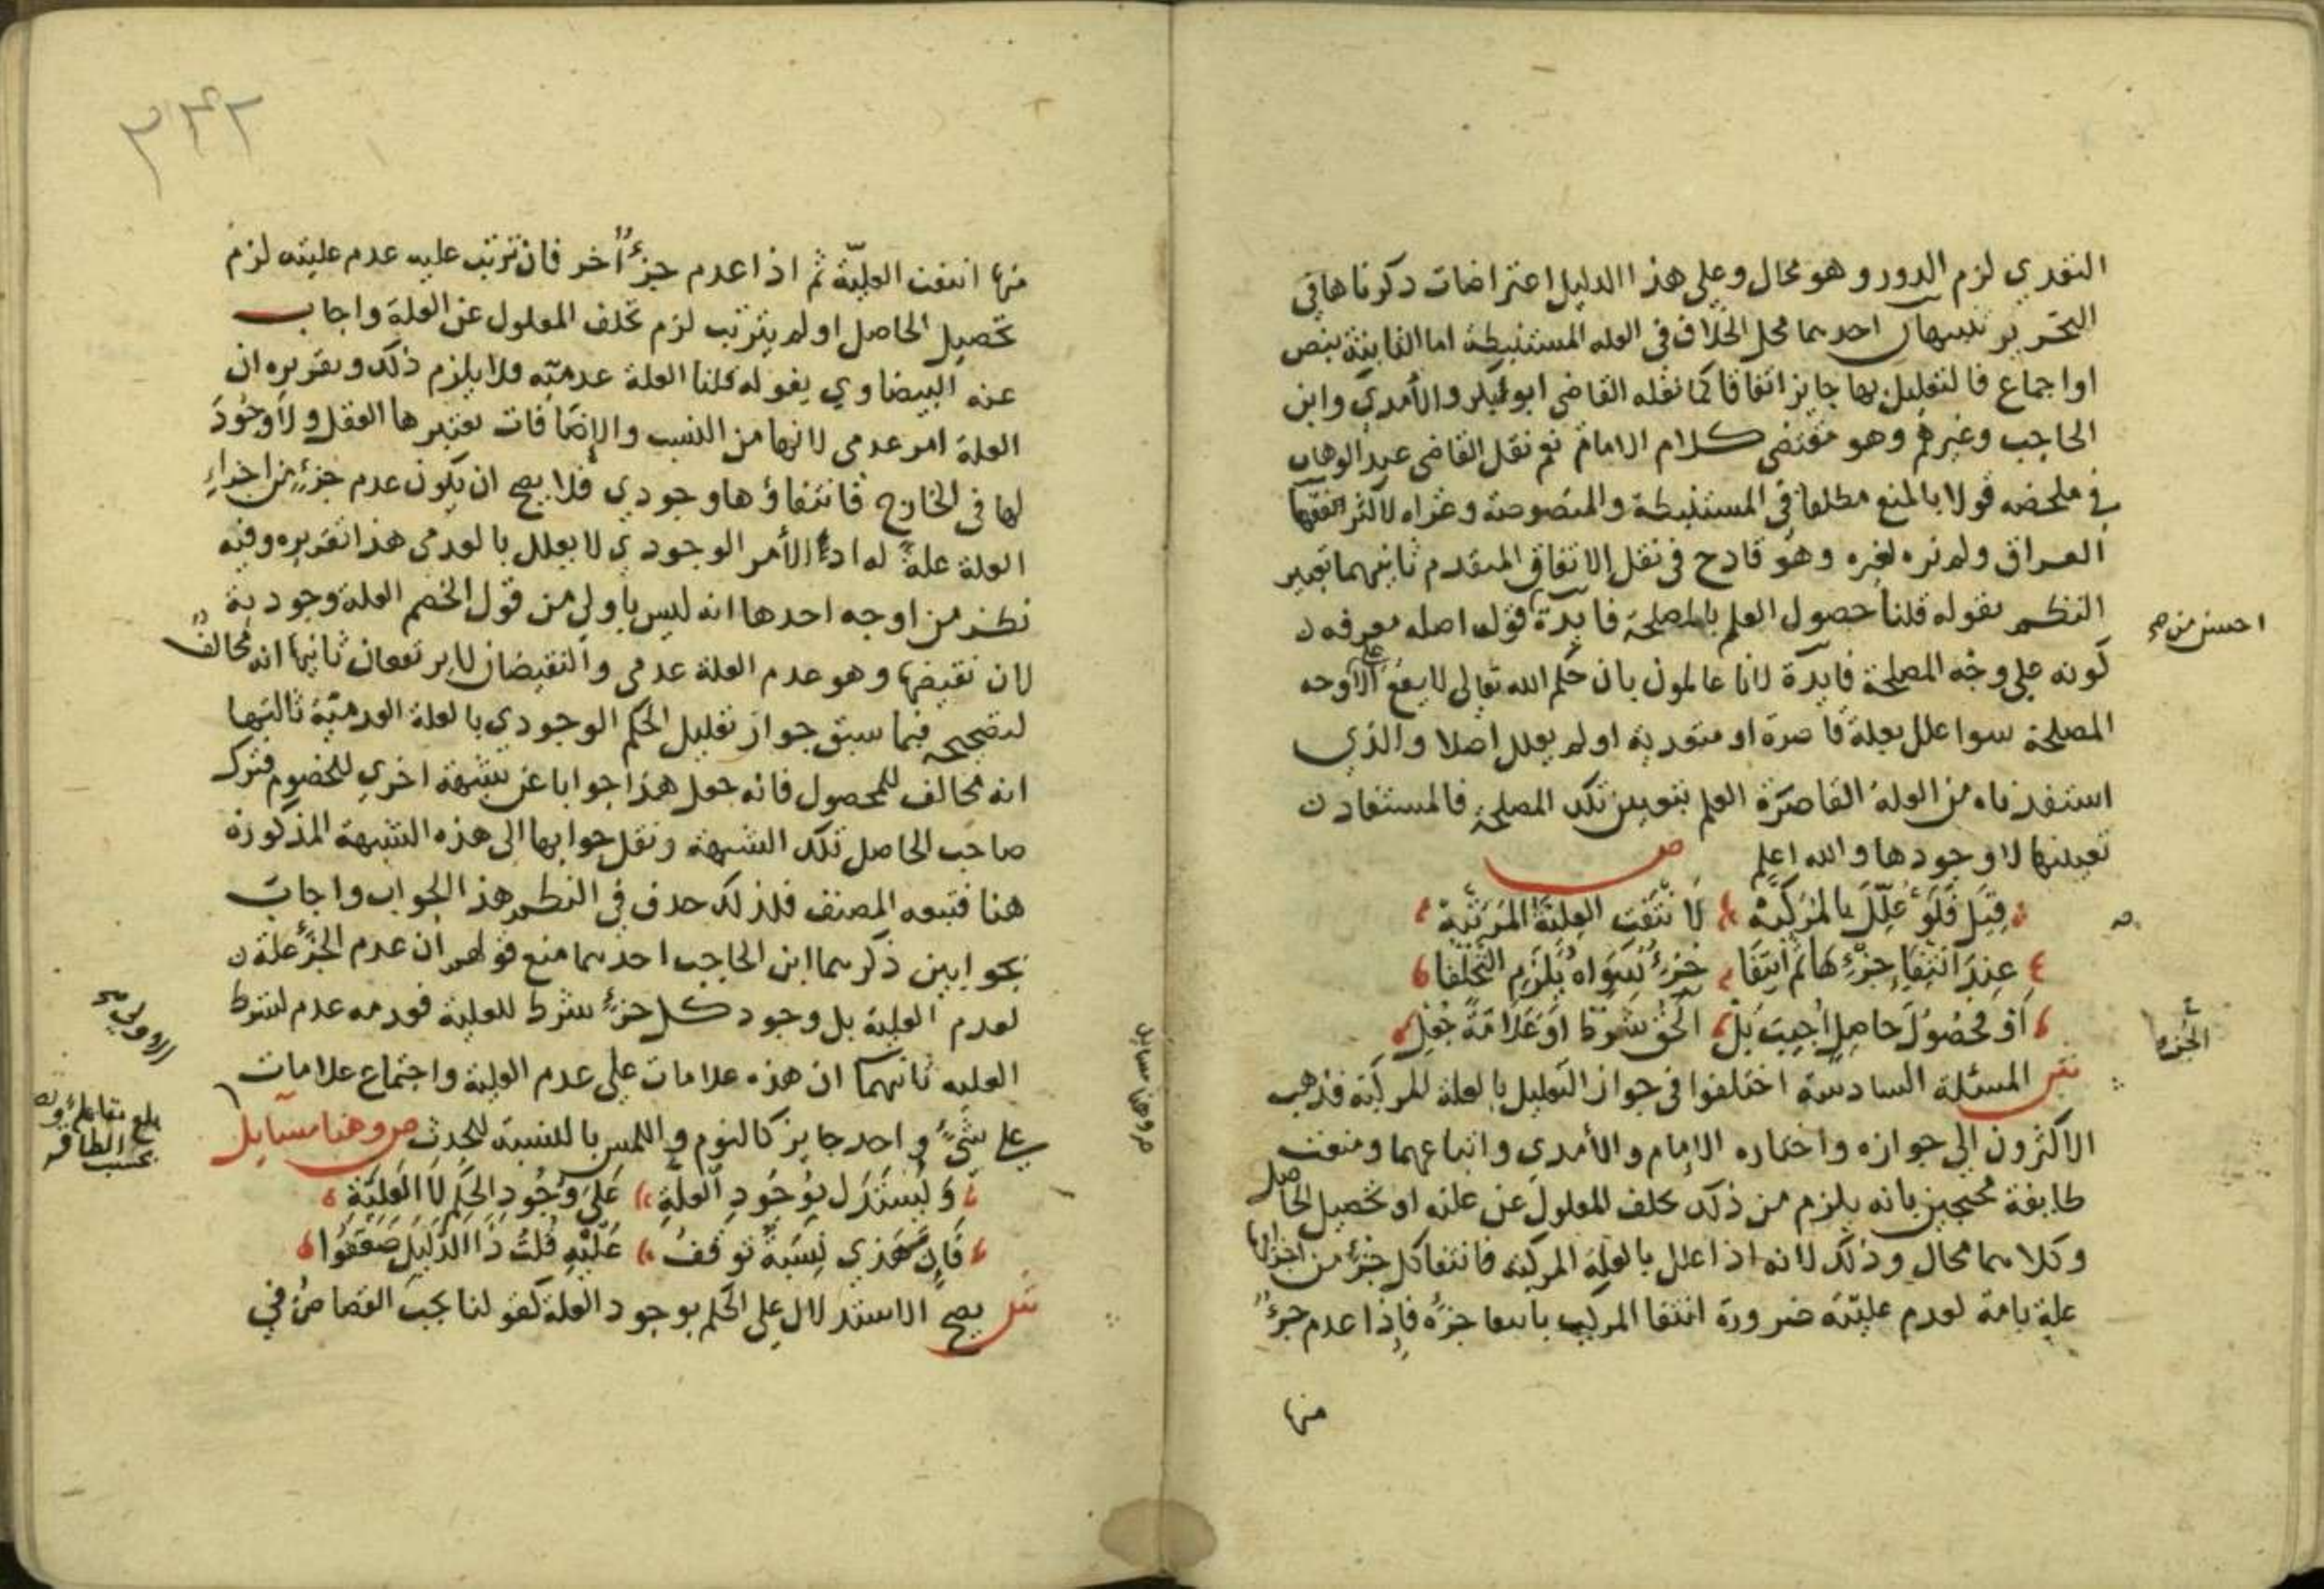 التعدي لزم الدور وهو محال وعلى هذا الدليل اعتراضات ذكرناها في
التحرير تنبيهان احدهما محل الخلاف في العله المستنبطة اما الثابتة بنص
او اجماع فالتعليل بها جايز اتفاقا كما نقله القاضي ابو بكر والآمدي وابن
الحاجب وغيرهم وهو مقتضى كلام الامام نعم نقل القاضي عبد الوهاب
في ملخصه قولا بالمنع مطلقا في المستنبطة والمنصوصة وعزاه لاكثر فقها
العراق ولم نره لغيره وهو قادح في نقل الاتفاق المتقدم ثانيهما تعبير
النظم بقوله قلنا حصول العلم بالمصلحة فايدة قوله اصله معرفه
كونه على وجه المصلحة فايدة لانا عالمون بان حكم الله تعالى لا يقع الا على وجه
المصلحة سوا علل بعلة قاصرة او متعدية او لم يعلل اصلا والذي
استفدناه من العلة القاصرة العلم بتعيين تلك المصلحة فالمستفاد
تعيينها لا وجودها والله اعلم ص
قيل فلو علل بالمركبه لا نتفت العلية المرتبه
عند انتفا جزء لها ثم انتفا جزء سواه يلزم التخلفا
او محصول حاصل اجيب بل الحق شرطا او علامة جعل
ش المسئلة السادسة اختلفوا في جواز التعليل بالعلة المركبة فذهب
الاكثرون الى جوازه واختاره الامام والآمدي واتباعهما ومنعت
طايفة محتجين بانه يلزم من ذلك تخلف المعلول عن علته او تحصيل الحاصل
وكلاهما محال وذلك لانه اذا علل بالعلة المركبة فانتفا كل جزء من اجزائها
علة تامة لعدم عليته ضرورة انتفا المركب بانتفا جزئه فاذا عدم جزء
منها
احسن من
الجزء
٣٤٢
منها انتفت العليّة ثم اذا عدم جزءٌ آخر فان ترتب عليه عدم عليته لزم
تحصيل الحاصل او لم يترتب لزم تخلف المعلول عن العلة واجاب
عنه البيضاوي بقوله قلنا العلة عدميّه فلا يلزم ذلك وتقريره ان
العلة امر عدمى لانها من النسب والاضافات يعتبرها العقل ولا وجود
لها في الخارج فانتفاؤها وجودي فلا يصح ان يكون عدم جزء من اجزاء
العلة علة له اذ الأمر الوجودي لا يعلل بالعدمى هذا تقريره وفيه
نظر من اوجه احدها انه ليس باولى من قول الخصم العلة وجودية
لان نقيضها وهو عدم العلة عدمي والنقيضان لا يرتفعان ثانيها انه مخالف
لتصحيحه فيما سبق جواز تعليل الحكم الوجودي بالعلة العدميّة ثالثها
انه مخالف للمحصول فانه جعل هذا جوابا عن شبهة اخرى للخصوم فترك
صاحب الحاصل تلك الشبهة ونقل جوابها الى هذه الشبهة المذكورة
هنا فتبعه المصنف فلذلك حذف في النظم هذا الجواب واجاب
بجوابين ذكرهما ابن الحاجب احدهما منع قولهم ان عدم الجزء علة
لعدم العلية بل وجود كل جزء شرط للعلية فعدمه عدم لشرط
العليه ثانيهما ان هذه علامات على عدم العلية واجتماع علامات
على شيء واحد جايز كالنوم واللمس بالنسبة للحدث ص وهنا مسايل
ويستدل بوجود العلة على وجود الحكم لا العلية
فان هذي نسبة توقف عليه قلت ذا الدليل ضعفوا
ش يصح الاستدلال على الحكم بوجود العلة كقولنا يجب القصاص في
بلغ مقابلة
بحسب الطاقه
ص وهنا مسايل